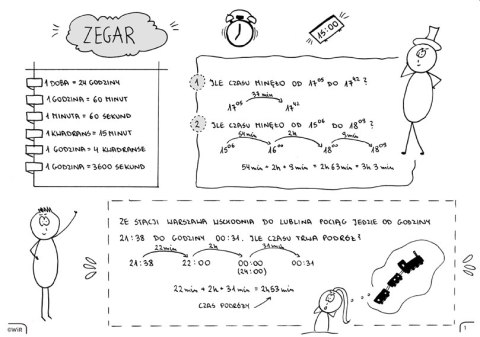 ZEGAR
15:00
1 DOBA = 24 GODZINY
1 GODZINA = 60 MINUT
1 MINUTA = 60 SEKUND
1 KWADRANS = 15 MINUT
1 GODZINA = 4 KWADRANSE
1 GODZINA = 3600 SEKUND
1 ILE CZASU MINĘŁO OD 17⁰⁵ DO 17⁴² ?
37 min
17⁰⁵ 17⁴²
2 ILE CZASU MINĘŁO OD 15⁰⁶ DO 18⁰⁹ ?
54 min 2h 9 min
15⁰⁶ 16⁰⁰ 18⁰⁰ 18⁰⁹
54 min + 2h + 9 min = 2h 63 min = 3h 3 min
ZE STACJI WARSZAWA WSCHODNIA DO LUBLINA POCIĄG JEDZIE OD GODZINY
21:38 DO GODZINY 00:31. ILE CZASU TRWA PODRÓŻ?
22 min 2h 31 min
21:38 22:00 00:00 00:31
(24:00)
22 min + 2h + 31 min = 2h 53 min
CZAS PODRÓŻY
©WiR
1